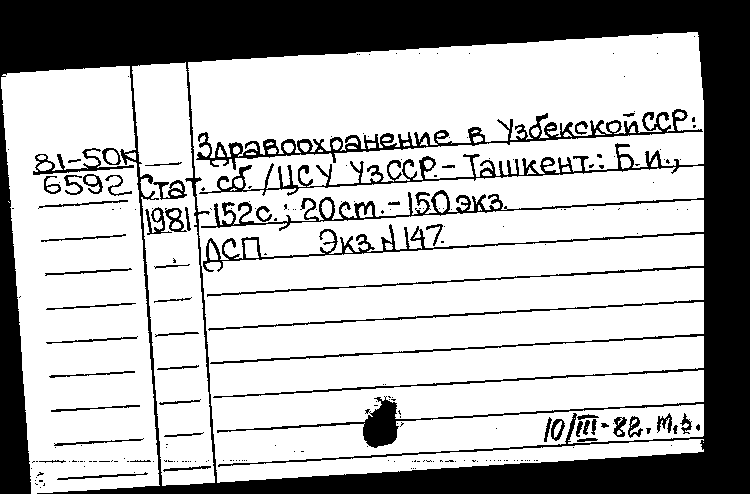 Здравоохранение в Узбекской ССР:
81-50к
6592 Стат. сб. /ЦСУ УзССР.- Ташкент.: Б.и.,
1981-152с.; 20ст.-150экз.
ДСП. Экз.N147.
10/III-82. т.